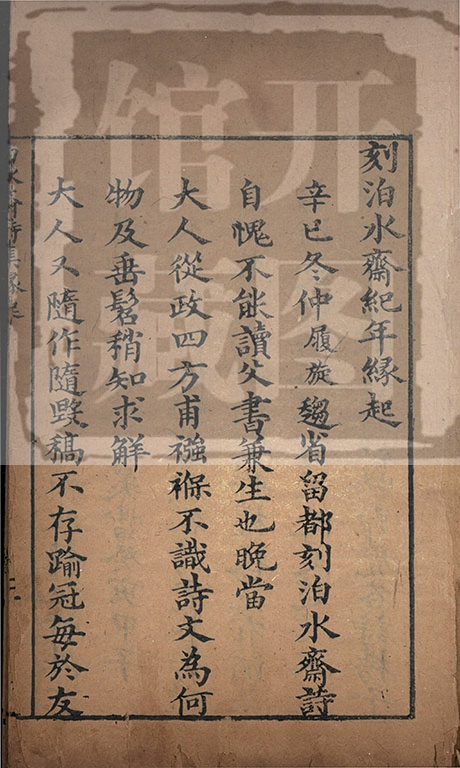 刻泊水齋紀年縁起
辛巳冬仲履旋趨省留都刻泊水齋詩
自愧不能讀父書兼生也晚當
大人從政四方甫襁褓不識詩文為何
物及垂髫稍知求解
大人又隨作隨毀稿不存踰冠每於友
开图
馆藏